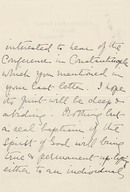 interested to hear of the
Conference in Constantinople
which you mentioned in
your last letter. I hope
the fruit will be deep &
abiding. Nothing but
a real baptism of the
Spirit of God will bring
true & permanent
either to an individual